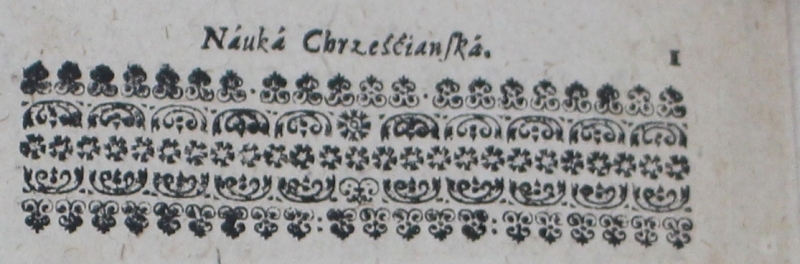 Náuká Chrześćianſká. 1